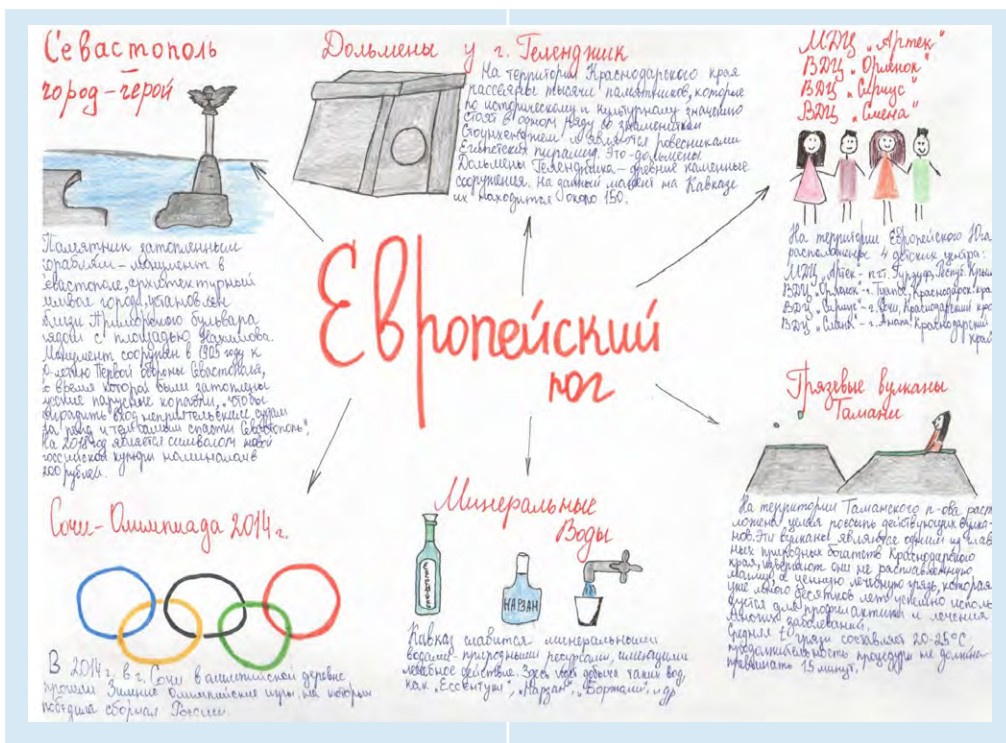 Севастополь
–
город-герой
Памятник затопленным
кораблям – монумент в
Севастополе, архитектурный
символ города, установлен
близи Приморского бульвара
рядом с площадью Нахимова.
Монумент сооружен в 1905 году к
летию Первой обороны Севастополя,
во время которой были затоплены
русские парусные корабли, "чтобы
заградить вход неприятельским судам
на рейд и тем самым спасти Севастополь".
На 2018 год является символом новой
российской купюры номиналом в
200 рублей.
Дольмены у г. Геленджик
На территории Краснодарского края
рассеяны тысячи памятников, которые
по историческому и культурному значению
стоят в одном ряду со знаменитым
Стоунхенджем и являются ровесниками
Египетских пирамид. Это – дольмены.
Дольмены Геленджика – древние каменные
сооружения. На данный момент на Кавказе
их находится около 150.
МДЦ "Артек"
ВДЦ "Орленок"
ВДЦ "Сириус"
ВДЦ "Смена"
На территории Европейского Юга
расположены 4 детских центра:
МДЦ "Артек" - пгт. Гурзуф, Респуб. Крым
ВДЦ "Орленок" - г. Туапсе, Краснодарск. края
ВДЦ "Сириус" - г. Сочи, Краснодарский край
ВДЦ "Смена" - г. Анапа, Краснодарский
край
Европейский
юг
Грязевые вулканы
Тамани
На территории Таманского п-ова расп
ложена целая россыпь действующих вулка-
нов. Эти вулканы являются одним из глав
ных природных богатств Краснодарского
края, извергают они не расплавленную
магму, а ценную лечебную грязь, которая
уже много десятков лет успешно исполь
зуется для профилактики и лечения
многих заболеваний.
Средняя t грязи составляет 20-25°С,
продолжительность процедуры не должна
превышать 15 минут.
Сочи-Олимпиада 2014 г.
В 2014 г. в г. Сочи в олимпийской деревне
прошли Зимние Олимпийские игры, на которых
победила сборная России.
Минеральные
Воды
НАРЗАН
Кавказ славится минеральными
водами – природными ресурсами, имеющими
лечебное действие. Здесь идёт добыча таких вод,
как "Ессентуки", "Нарзан", "Боржоми", и др